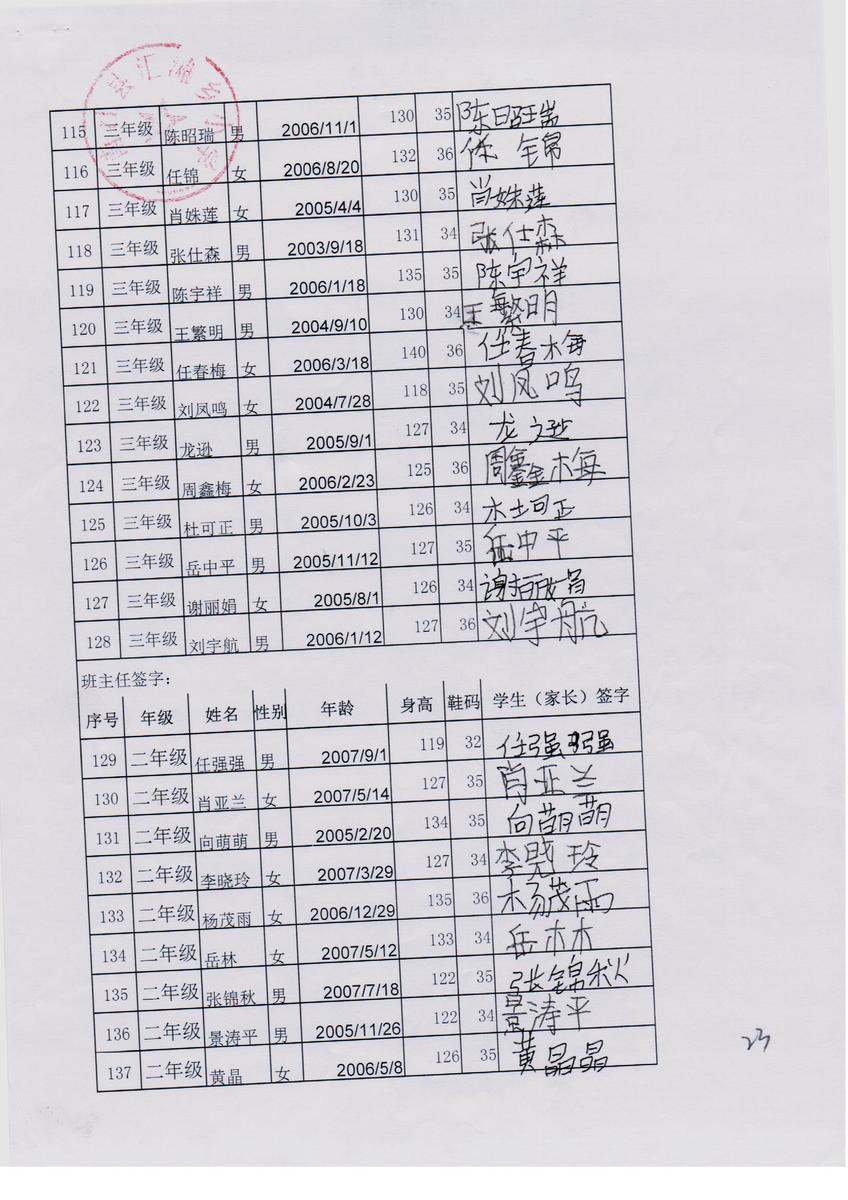 115 三年级 陈昭瑞 男 2006/11/1 130 35 陈昭瑞
116 三年级 任锦 女 2006/8/20 132 36 任锦
117 三年级 肖姝莲 女 2005/4/4 130 35 肖姝莲
118 三年级 张仕森 男 2003/9/18 131 34 张仕森
119 三年级 陈宇祥 男 2006/1/18 135 35 陈宇祥
120 三年级 王繁明 男 2004/9/10 130 34 王繁明
121 三年级 任春梅 女 2006/3/18 140 36 任春梅
122 三年级 刘凤鸣 女 2004/7/28 118 35 刘凤鸣
123 三年级 龙逊 男 2005/9/1 127 34 龙逊
124 三年级 周鑫梅 女 2006/2/23 125 36 周鑫梅
125 三年级 杜可正 男 2005/10/3 126 34 杜可正
126 三年级 岳中平 男 2005/11/12 127 35 岳中平
127 三年级 谢丽娟 女 2005/8/1 126 34 谢丽娟
128 三年级 刘宇航 男 2006/1/12 127 36 刘宇航
班主任签字：
序号 年级 姓名 性别 年龄 身高 鞋码 学生（家长）签字
129 二年级 任强强 男 2007/9/1 119 32 任强强
130 二年级 肖亚兰 女 2007/5/14 127 35 肖亚兰
131 二年级 向萌萌 男 2005/2/20 134 35 向萌萌
132 二年级 李晓玲 女 2007/3/29 127 34 李晓玲
133 二年级 杨茂雨 女 2006/12/29 135 36 杨茂雨
134 二年级 岳林 女 2007/5/12 133 34 岳林
135 二年级 张锦秋 男 2007/7/18 122 35 张锦秋
136 二年级 景涛平 男 2005/11/26 122 34 景涛平
137 二年级 黄晶 女 2006/5/8 126 35 黄晶晶
23